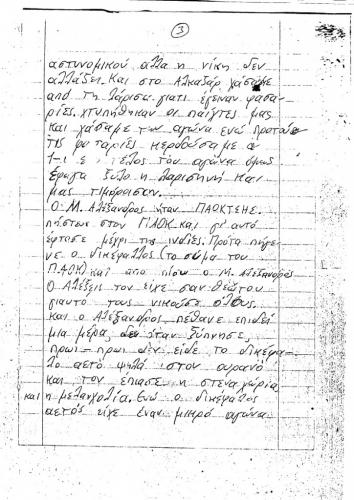 3
αστυνομικού αλλα η νίκη δεν
αλλάζει. Και στο Αλκαζάρ χάσαμε
από τη Λάρισα γιατί έγειναν φασα-
ρίες. χτυπήθηκαν οι παίχτες μας
και χάσαμε των αγώνα ενώ προτού
τις φασαρίες κερδούσαμε
1-1 ε τέλος του αγώνα όμως
έφαγα ξύλο η Λαρισηνή και
μας τιμόρισαν.
Ο Μ. Αλέξανδρος ήταν ΠΑΟΚΤΣΗΣ.
πίστευε στον ΠΑΟΚ και γι' αυτό
έφτασε μέχρι της ινδίες. Πρότα πήγε-
νε ο δικέφαλος (το σύμα του
ΠΑΟΚ) και από πίσω ο Μ. Αλέξανδρος
Ο Αλέξεις τον είχε σαν θεώτου
γιαυτό τους νικούσε όλους.
και ο Αλέξανδρος πέθανε επιδεί
μια μέρα, όταν ξύπνησε,
πρωι-πρωι δεν είδε το δικέφα-
λο αετό ψηλά στον ουρανό
και τον έπιασε η στεναχώρια
και η μελανχολία. Ενώ ο δικέφαλος
αετός είχε έναν μικρό αγώνα